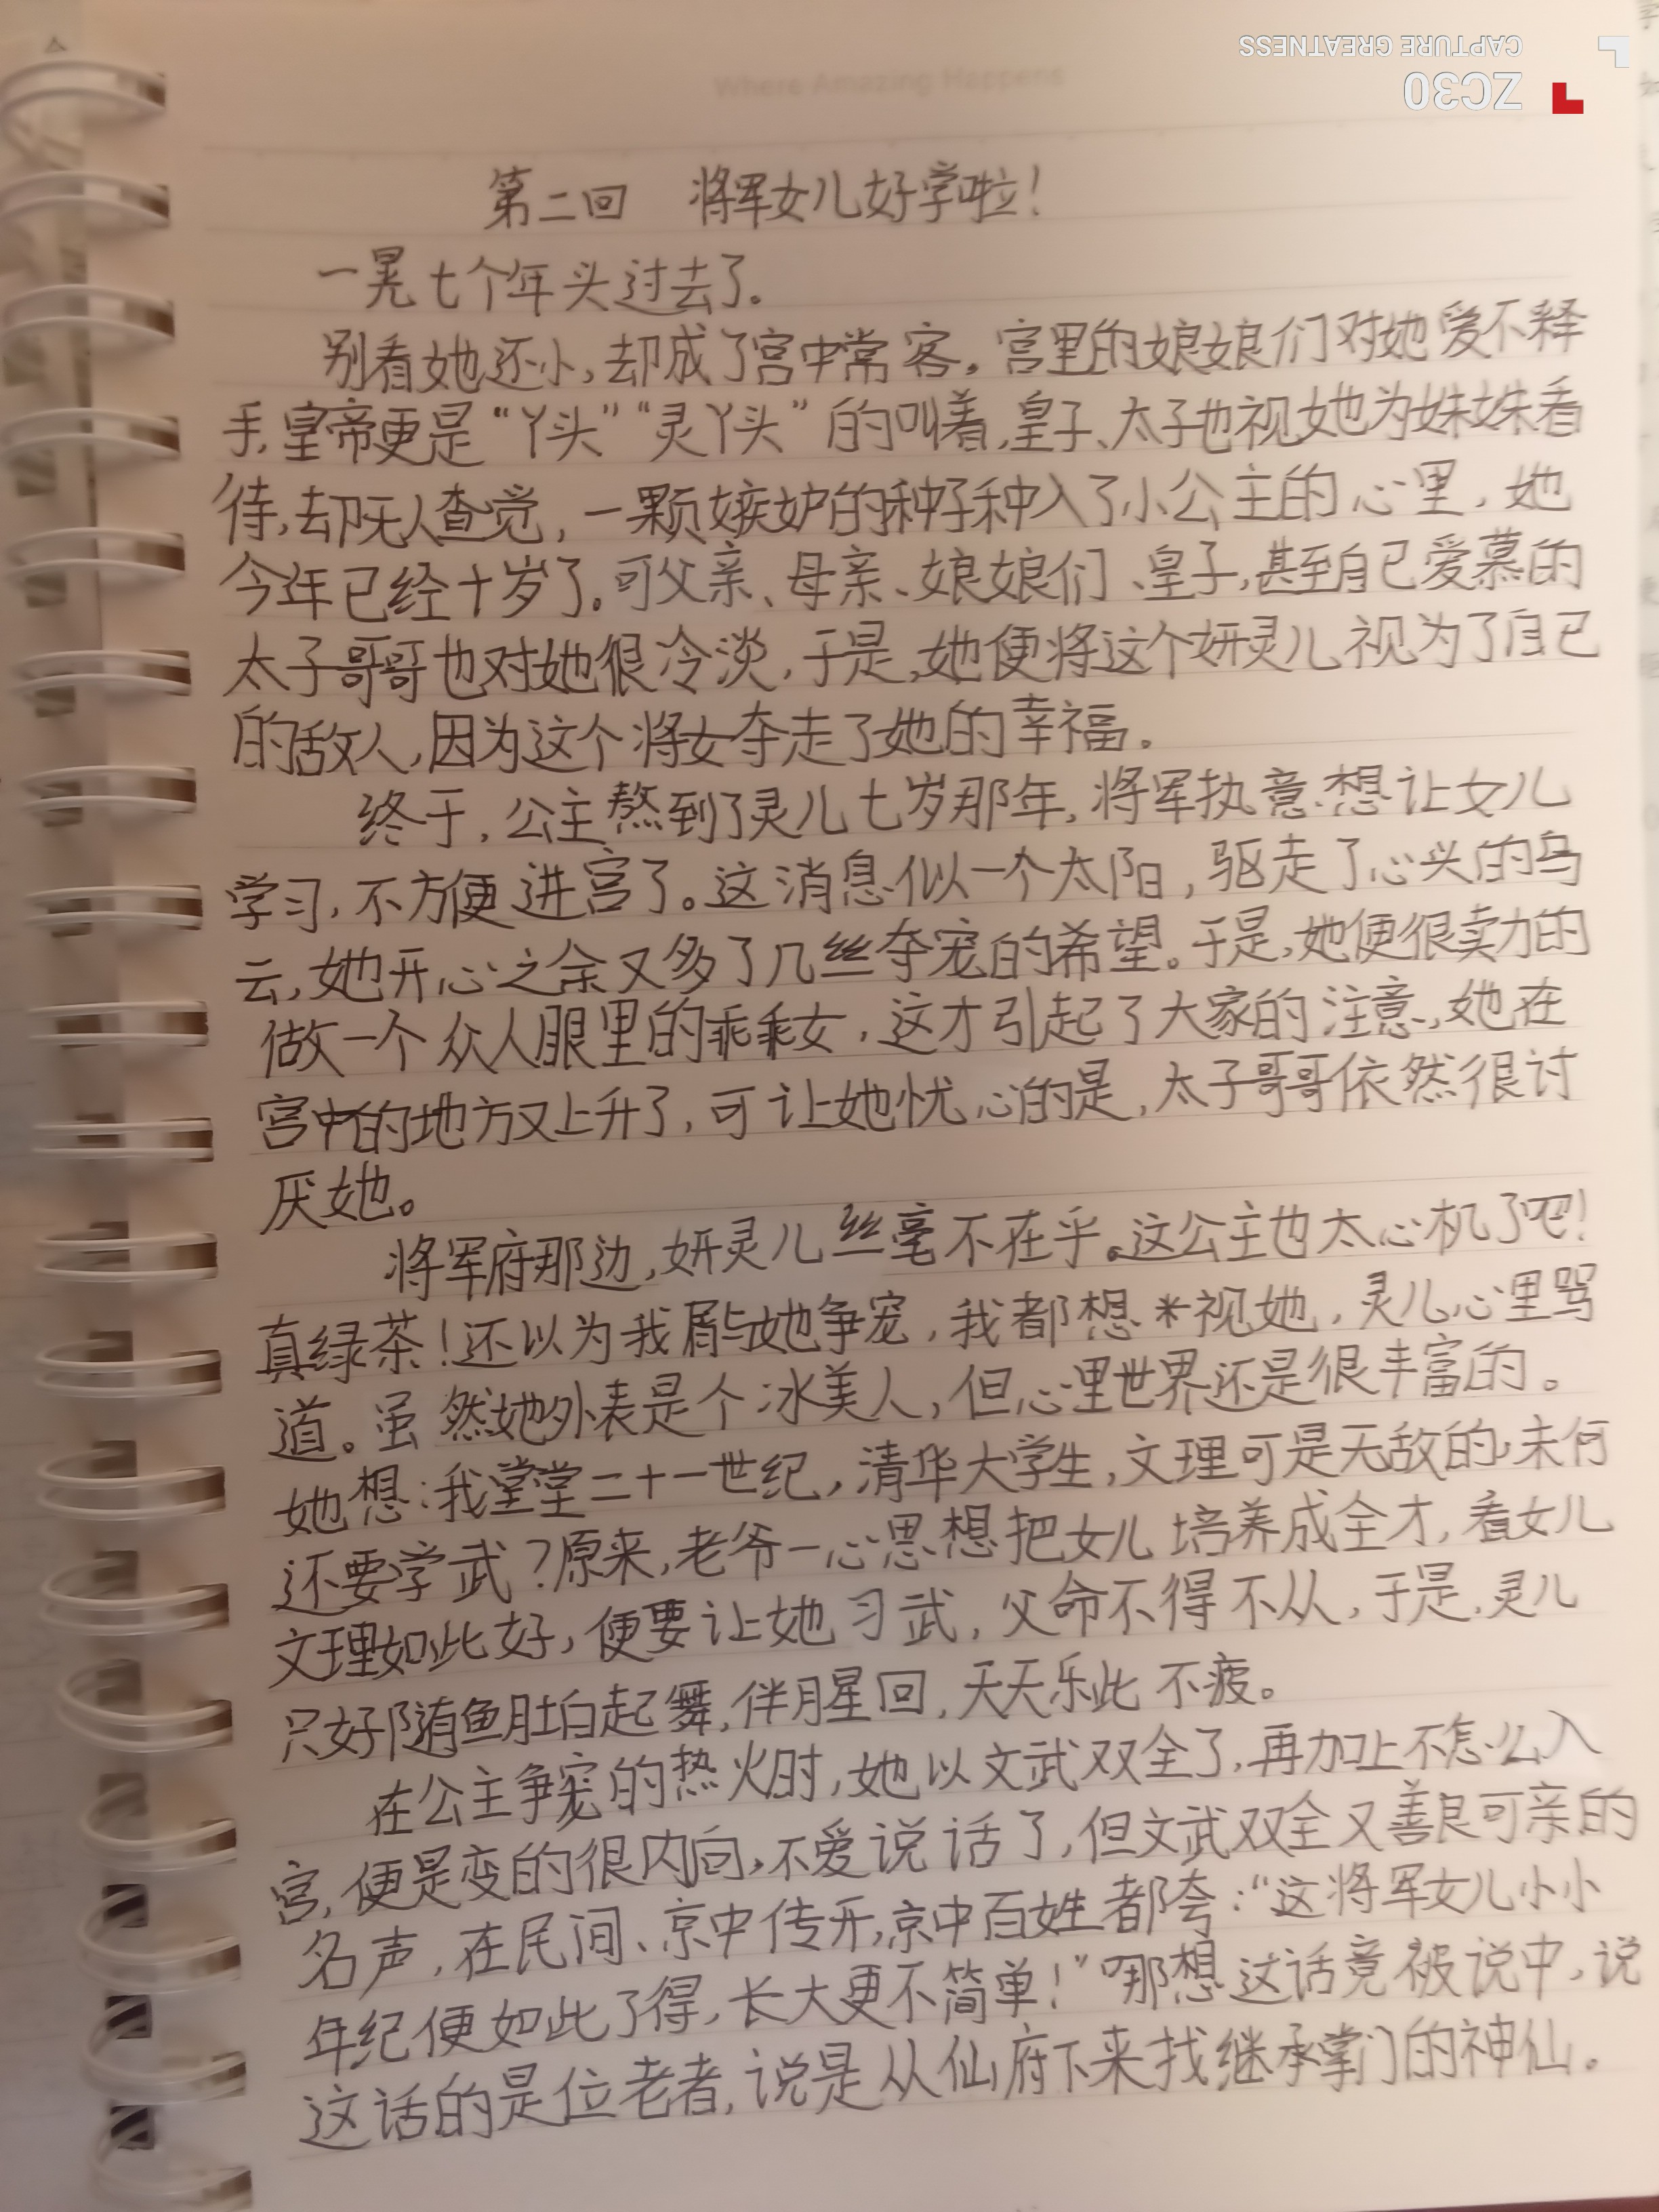 CAPTURE GREATNESS
ZC30
Where Amazing Happens
第二回 将军女儿好学啦！
一晃七个年头过去了。
别看她还小，却成了宫中常客。宫里的娘娘们对她爱不释
手，皇帝更是“丫头”“灵丫头”的叫着，皇子、太子也视她为妹妹看
待，却无人查觉，一颗嫉妒的种子种入了小公主的心里，她
今年已经十岁了。可父亲、母亲、娘娘们、皇子，甚至自己爱慕的
太子哥哥也对她很冷淡，于是，她便将这个妍灵儿视为了自己
的敌人，因为这个将女夺走了她的幸福。
终于，公主熬到了灵儿七岁那年，将军执意想让女儿
学习，不方便进宫了。这消息似一个太阳，驱走了心头的乌
云，她开心之余又多了几丝夺宠的希望。于是，她便很卖力的
做一个众人眼里的乖乖女，这才引起了大家的注意，她在
宫中的地方又上升了，可让她忧心的是，太子哥哥依然很讨
厌她。
将军府那边，妍灵儿丝毫不在乎。这公主也太心机了吧！
真绿茶！还以为我屑与她争宠，我都想*视她，灵儿心里骂
道。虽然她外表是个冰美人，但心里世界还是很丰富的。
她想：我堂堂二十一世纪，清华大学生，文理可是无敌的，未何
还要学武？原来，老爷一心思想把女儿培养成全才，看女儿
文理如此好，便要让她习武，父命不得不从，于是，灵儿
只好随鱼肚白起舞，伴月星回，天天乐此不疲。
在公主争宠的热火时，她以文武双全了，再加上不怎么入
宫，便是变的很内向，不爱说话了，但文武双全又善良可亲的
名声，在民间、京中传开，京中百姓都夸：“这将军女儿小小
年纪便如此了得，长大更不简单！”哪想这话竟被说中，说
这话的是位老者，说是从仙府下来找继承掌门的神仙。